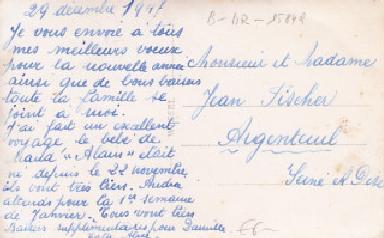 29 décembre 194
B-DR-15848
Je vous envoie à tous
mes meilleurs voeux
pour la nouvelle année
ainsi que de bons baisers
toute la famille se
joint à moi.
J'ai fait un excellent
voyage le bébé de
"Alain" était
né depuis le 22 novembre,
ils sont très fiers. Andrée
attends pour la 1re semaine
de Janvier. Tous vont bien
Baisers supplémentaires pour Danielle
Monsieur et Madame
Jean Fischer
Argenteuil
Seine et Oise